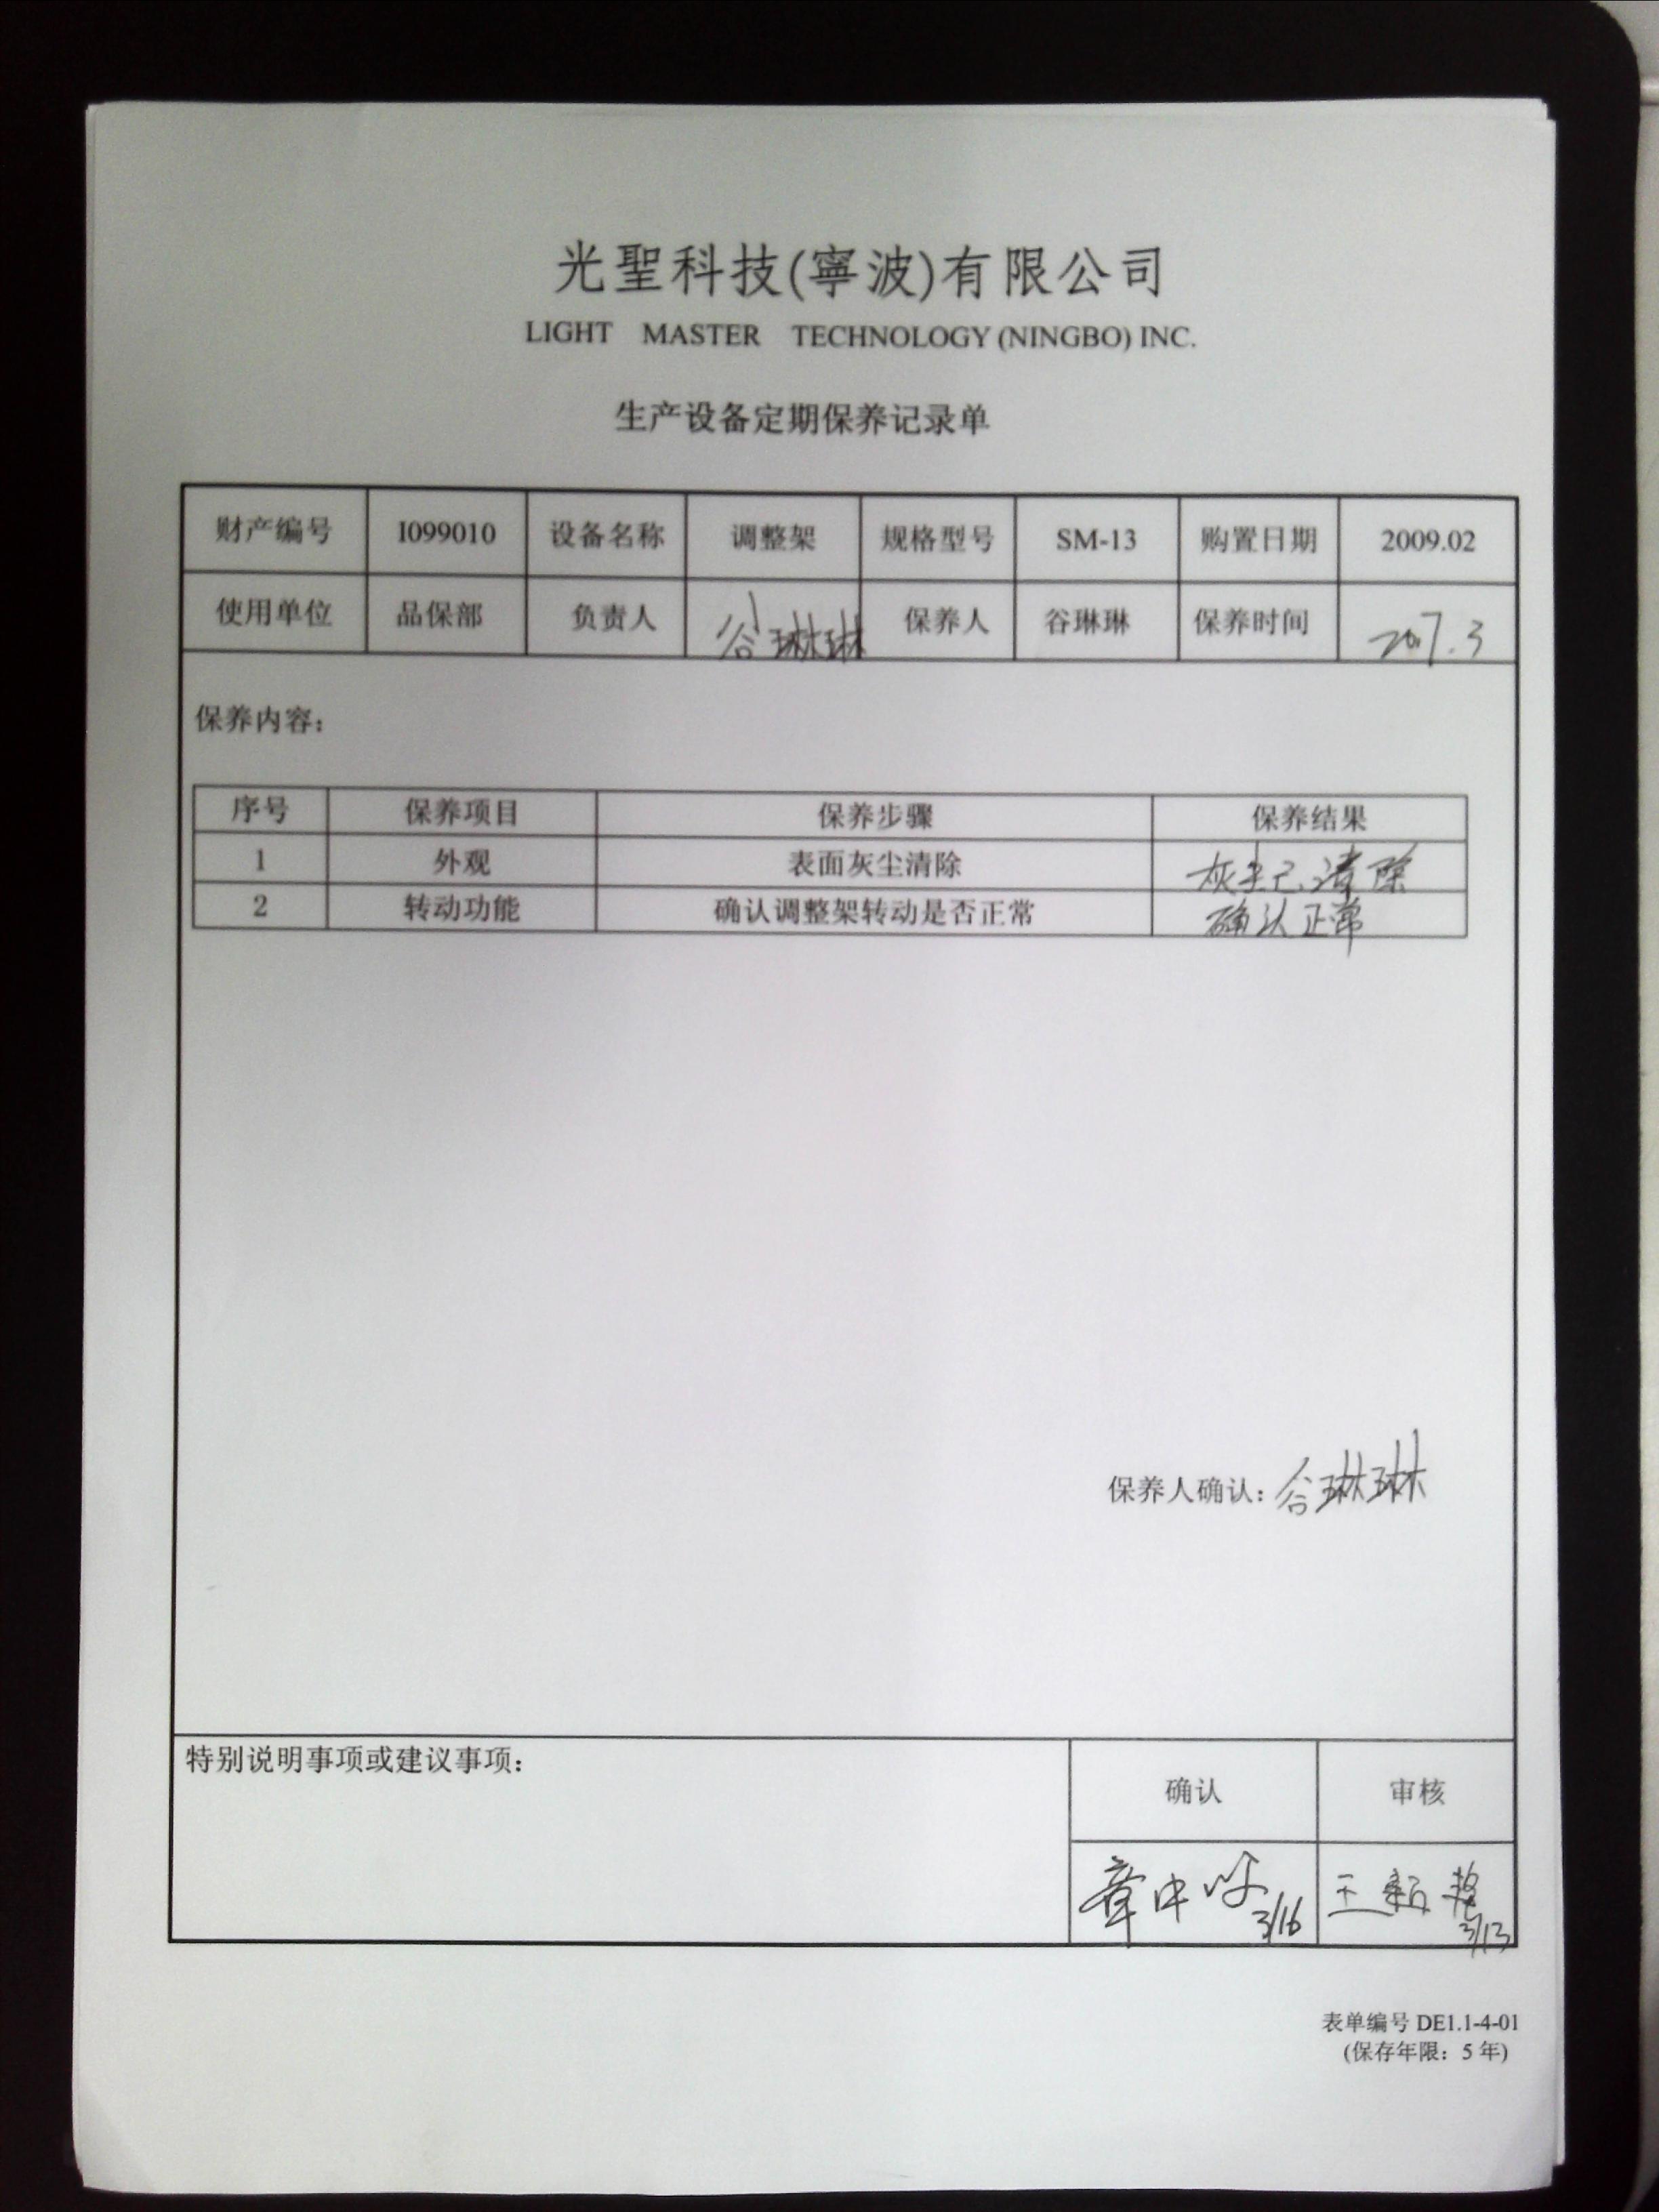 光聖科技(寧波)有限公司
LIGHT MASTER TECHNOLOGY (NINGBO) INC.
生产设备定期保养记录单
财产编号 I099010 设备名称 调整架 规格型号 SM-13 购置日期 2009.02
使用单位 品保部 负责人 谷琳琳 保养人 谷琳琳 保养时间 2017.3
保养内容：
序号 保养项目 保养步骤 保养结果
1 外观 表面灰尘清除 灰尘已清除
2 转动功能 确认调整架转动是否正常 确认正常
保养人确认：谷琳琳
特别说明事项或建议事项：
确认 审核
章中 3/16 王 3/13
表单编号 DE1.1-4-01
(保存年限：5 年)